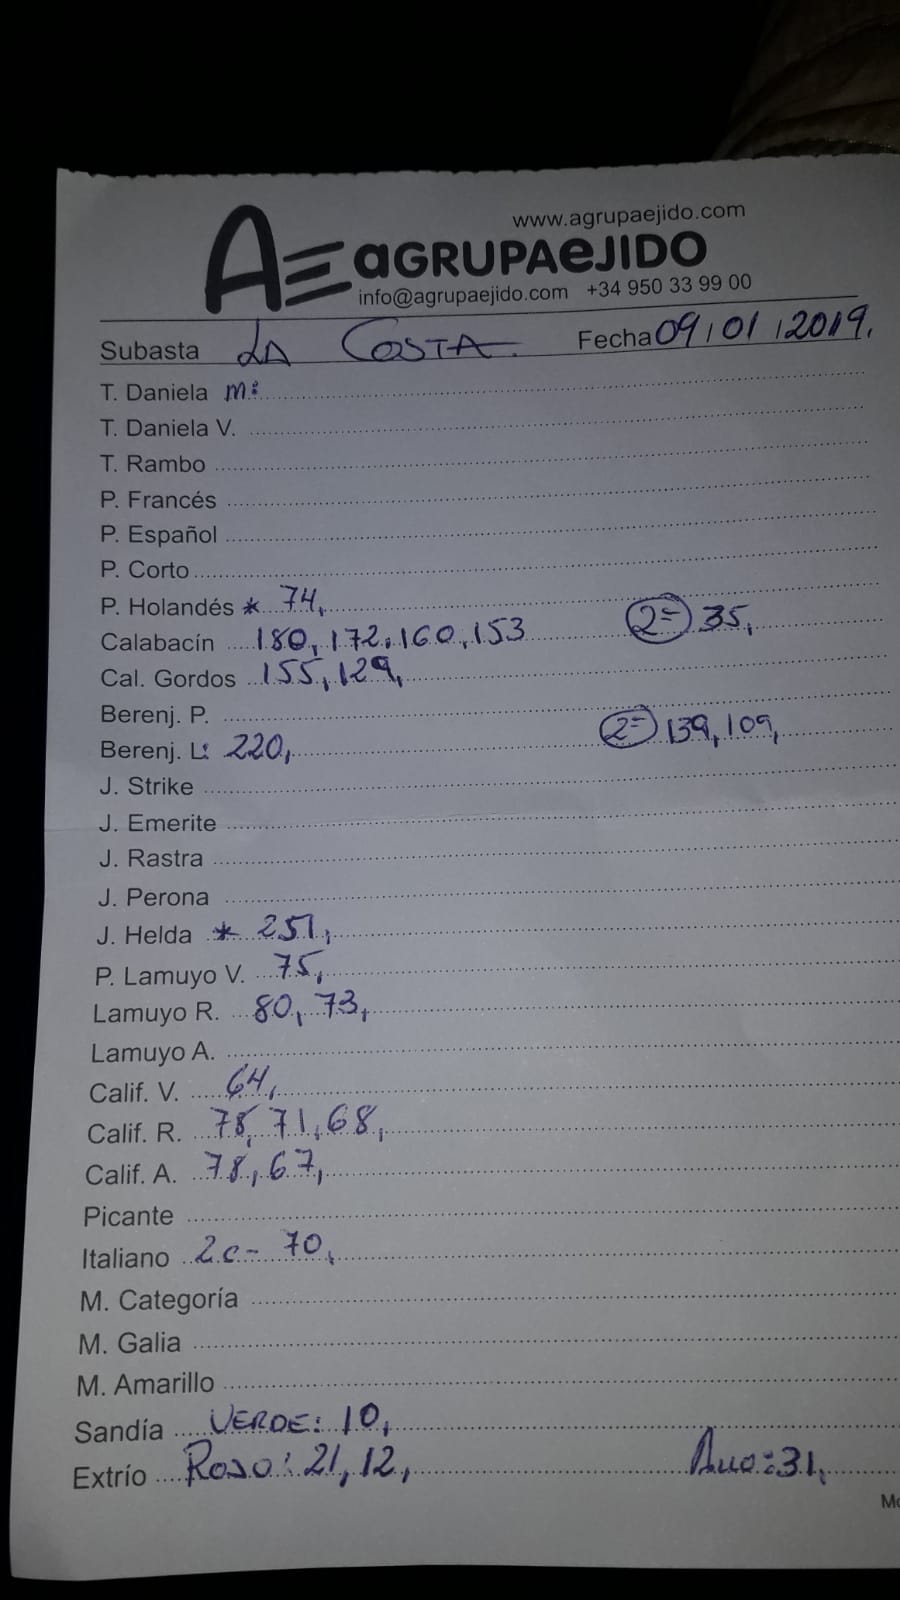 www.agrupaejido.com
AE aGRUPAeJIDO
info@agrupaejido.com +34 950 33 99 00
Subasta LA COSTA. Fecha 09/01/2019.
T. Daniela M:
T. Daniela V.
T. Rambo
P. Francés
P. Español
P. Corto
P. Holandés * 74,
Calabacín 180, 172, 160, 153 2= 35,
Cal. Gordos 155, 129,
Berenj. P.
Berenj. L: 220, 2= 139, 109,
J. Strike
J. Emerite
J. Rastra
J. Perona
J. Helda * 251,
P. Lamuyo V. 75,
Lamuyo R. 80, 73,
Lamuyo A.
Calif. V. 64,
Calif. R. 78, 71, 68,
Calif. A. 78, 67,
Picante
Italiano 2c- 70,
M. Categoría
M. Galia
M. Amarillo
Sandía VERDE: 10,
Extrío ROJO: 21, 12, :31,